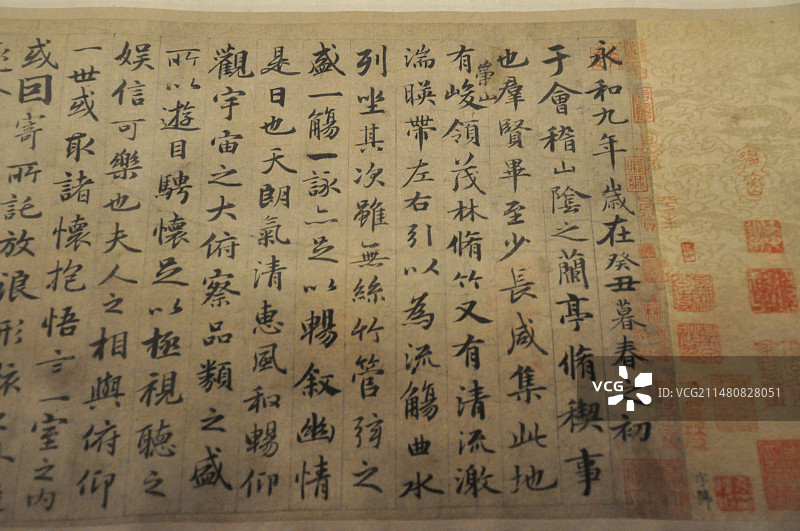 永和九年歲在癸丑暮春之初
于會稽山陰之蘭亭脩稧事
也羣賢畢至少長咸集此地
有崇山峻領茂林脩竹又有清流激
湍暎帶左右引以為流觴曲水
列坐其次雖無絲竹管弦之
盛一觴一詠亦足以暢叙幽情
是日也天朗氣清惠風和暢仰
觀宇宙之大俯察品類之盛
所以遊目騁懷足以極視聽之
娛信可樂也夫人之相與俯仰
一世或取諸懷抱悟言一室之内
或因寄所託放浪形
VCG
ID: VCG211480828051